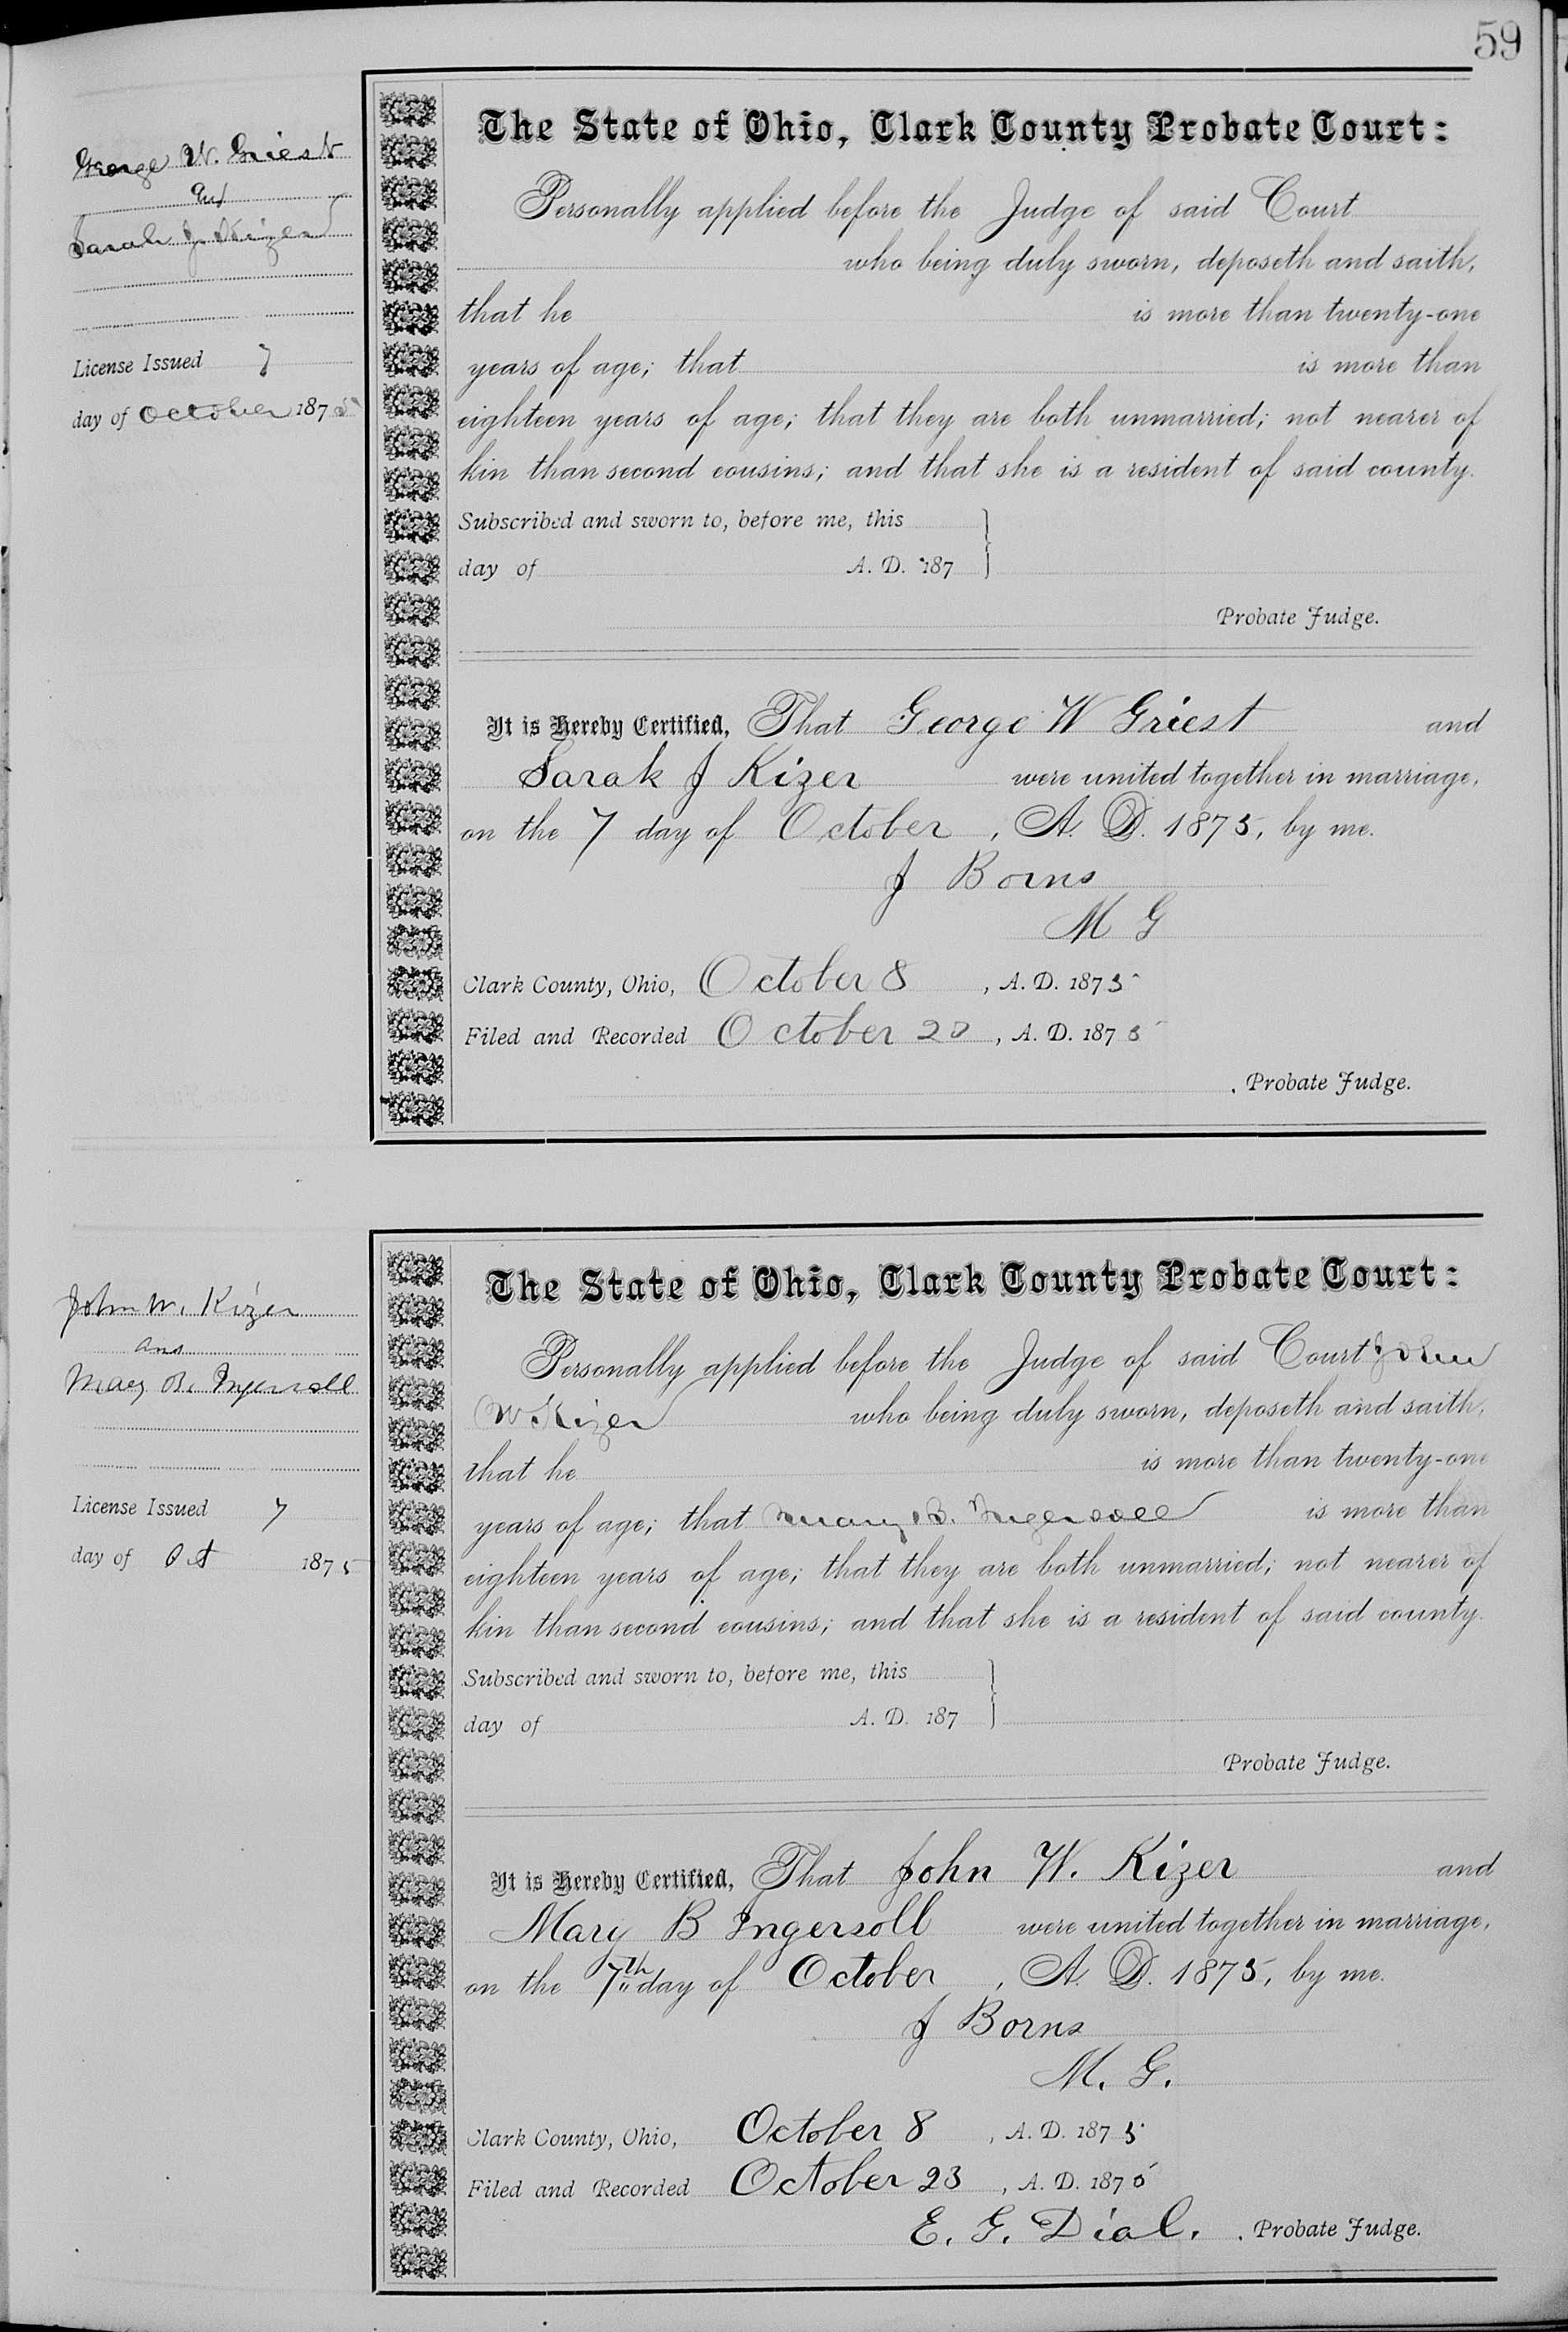 59
George W. Griest
and
Sarah J Kizer
License Issued 7
day of October 1875
The State of Ohio, Clark County Probate Court:
Personally applied before the Judge of said Court
who being duly sworn, deposeth and saith,
that he is more than twenty-one
years of age; that is more than
eighteen years of age; that they are both unmarried; not nearer of
kin than second cousins; and that she is a resident of said county.
Subscribed and sworn to, before me, this
day of A. D. 187
Probate Judge.
It is Hereby Certified, That George W Griest and
Sarah J Kizer were united together in marriage,
on the 7 day of October, A. D. 1875, by me.
J Borns
M G
Clark County, Ohio, October 8, A. D. 1875
Filed and Recorded October 20, A. D. 1875
Probate Judge.
John W. Kizer
and
Mary B. Ingersoll
License Issued 7
day of Oct 1875
The State of Ohio, Clark County Probate Court:
Personally applied before the Judge of said Court John
W. Kizer who being duly sworn, deposeth and saith,
that he is more than twenty-one
years of age; that Mary B. Ingersoll is more than
eighteen years of age; that they are both unmarried; not nearer of
kin than second cousins; and that she is a resident of said county.
Subscribed and sworn to, before me, this
day of A. D. 187
Probate Judge.
It is Hereby Certified, That John W. Kizer and
Mary B Ingersoll were united together in marriage,
on the 7th day of October, A. D. 1875, by me.
J Borns
M. G.
Clark County, Ohio, October 8, A. D. 1875
Filed and Recorded October 23, A. D. 1875
E. G. Dial. Probate Judge.